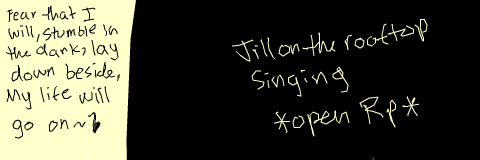 Fear that I
will, stumble in
the dark, lay
down beside,
My life will
go on~
Jill on the rooftop
Singing
*open Rp*